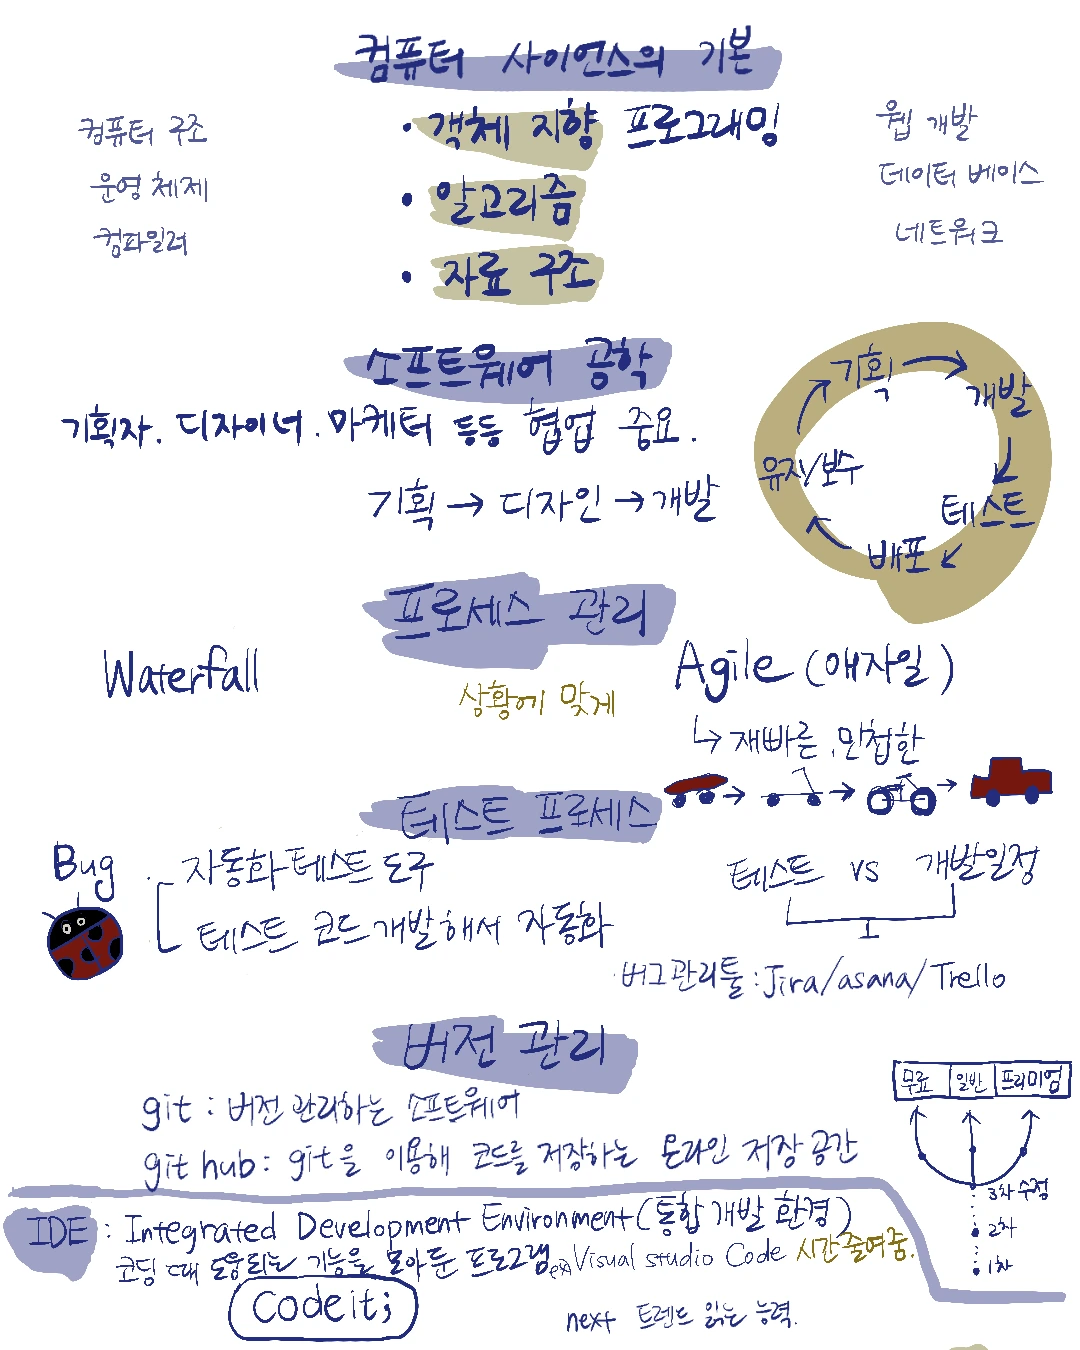 컴퓨터 사이언스의 기본
컴퓨터 구조
운영 체제
컴파일러
· 객체 지향 프로그래밍
· 알고리즘
· 자료 구조
웹 개발
데이터 베이스
네트워크
소프트웨어 공학
기획자. 디자이너. 마케터 등등 협업 중요.
기획 → 디자인 → 개발
기획 →
개발
테스트
배포
유지/보수
프로세스 관리
Waterfall
상황에 맞게
Agile (애자일)
↳ 재빠른, 민첩한
테스트 프로세스
Bug
자동화 테스트 도구
테스트 코드 개발해서 자동화
테스트 vs 개발일정
버그관리툴 : Jira/asana/Trello
버전 관리
git : 버전 관리하는 소프트웨어
git hub : git을 이용해 코드를 저장하는 온라인 저장 공간
무료 일반 프리미엄
3차 수정
2차
1차
IDE : Integrated Development Environment (통합 개발 환경)
코딩 때 도움되는 기능을 모아둔 프로그램 ex) Visual studio Code 시간 줄여줌.
Codeit;
next 트렌드 읽는 능력.